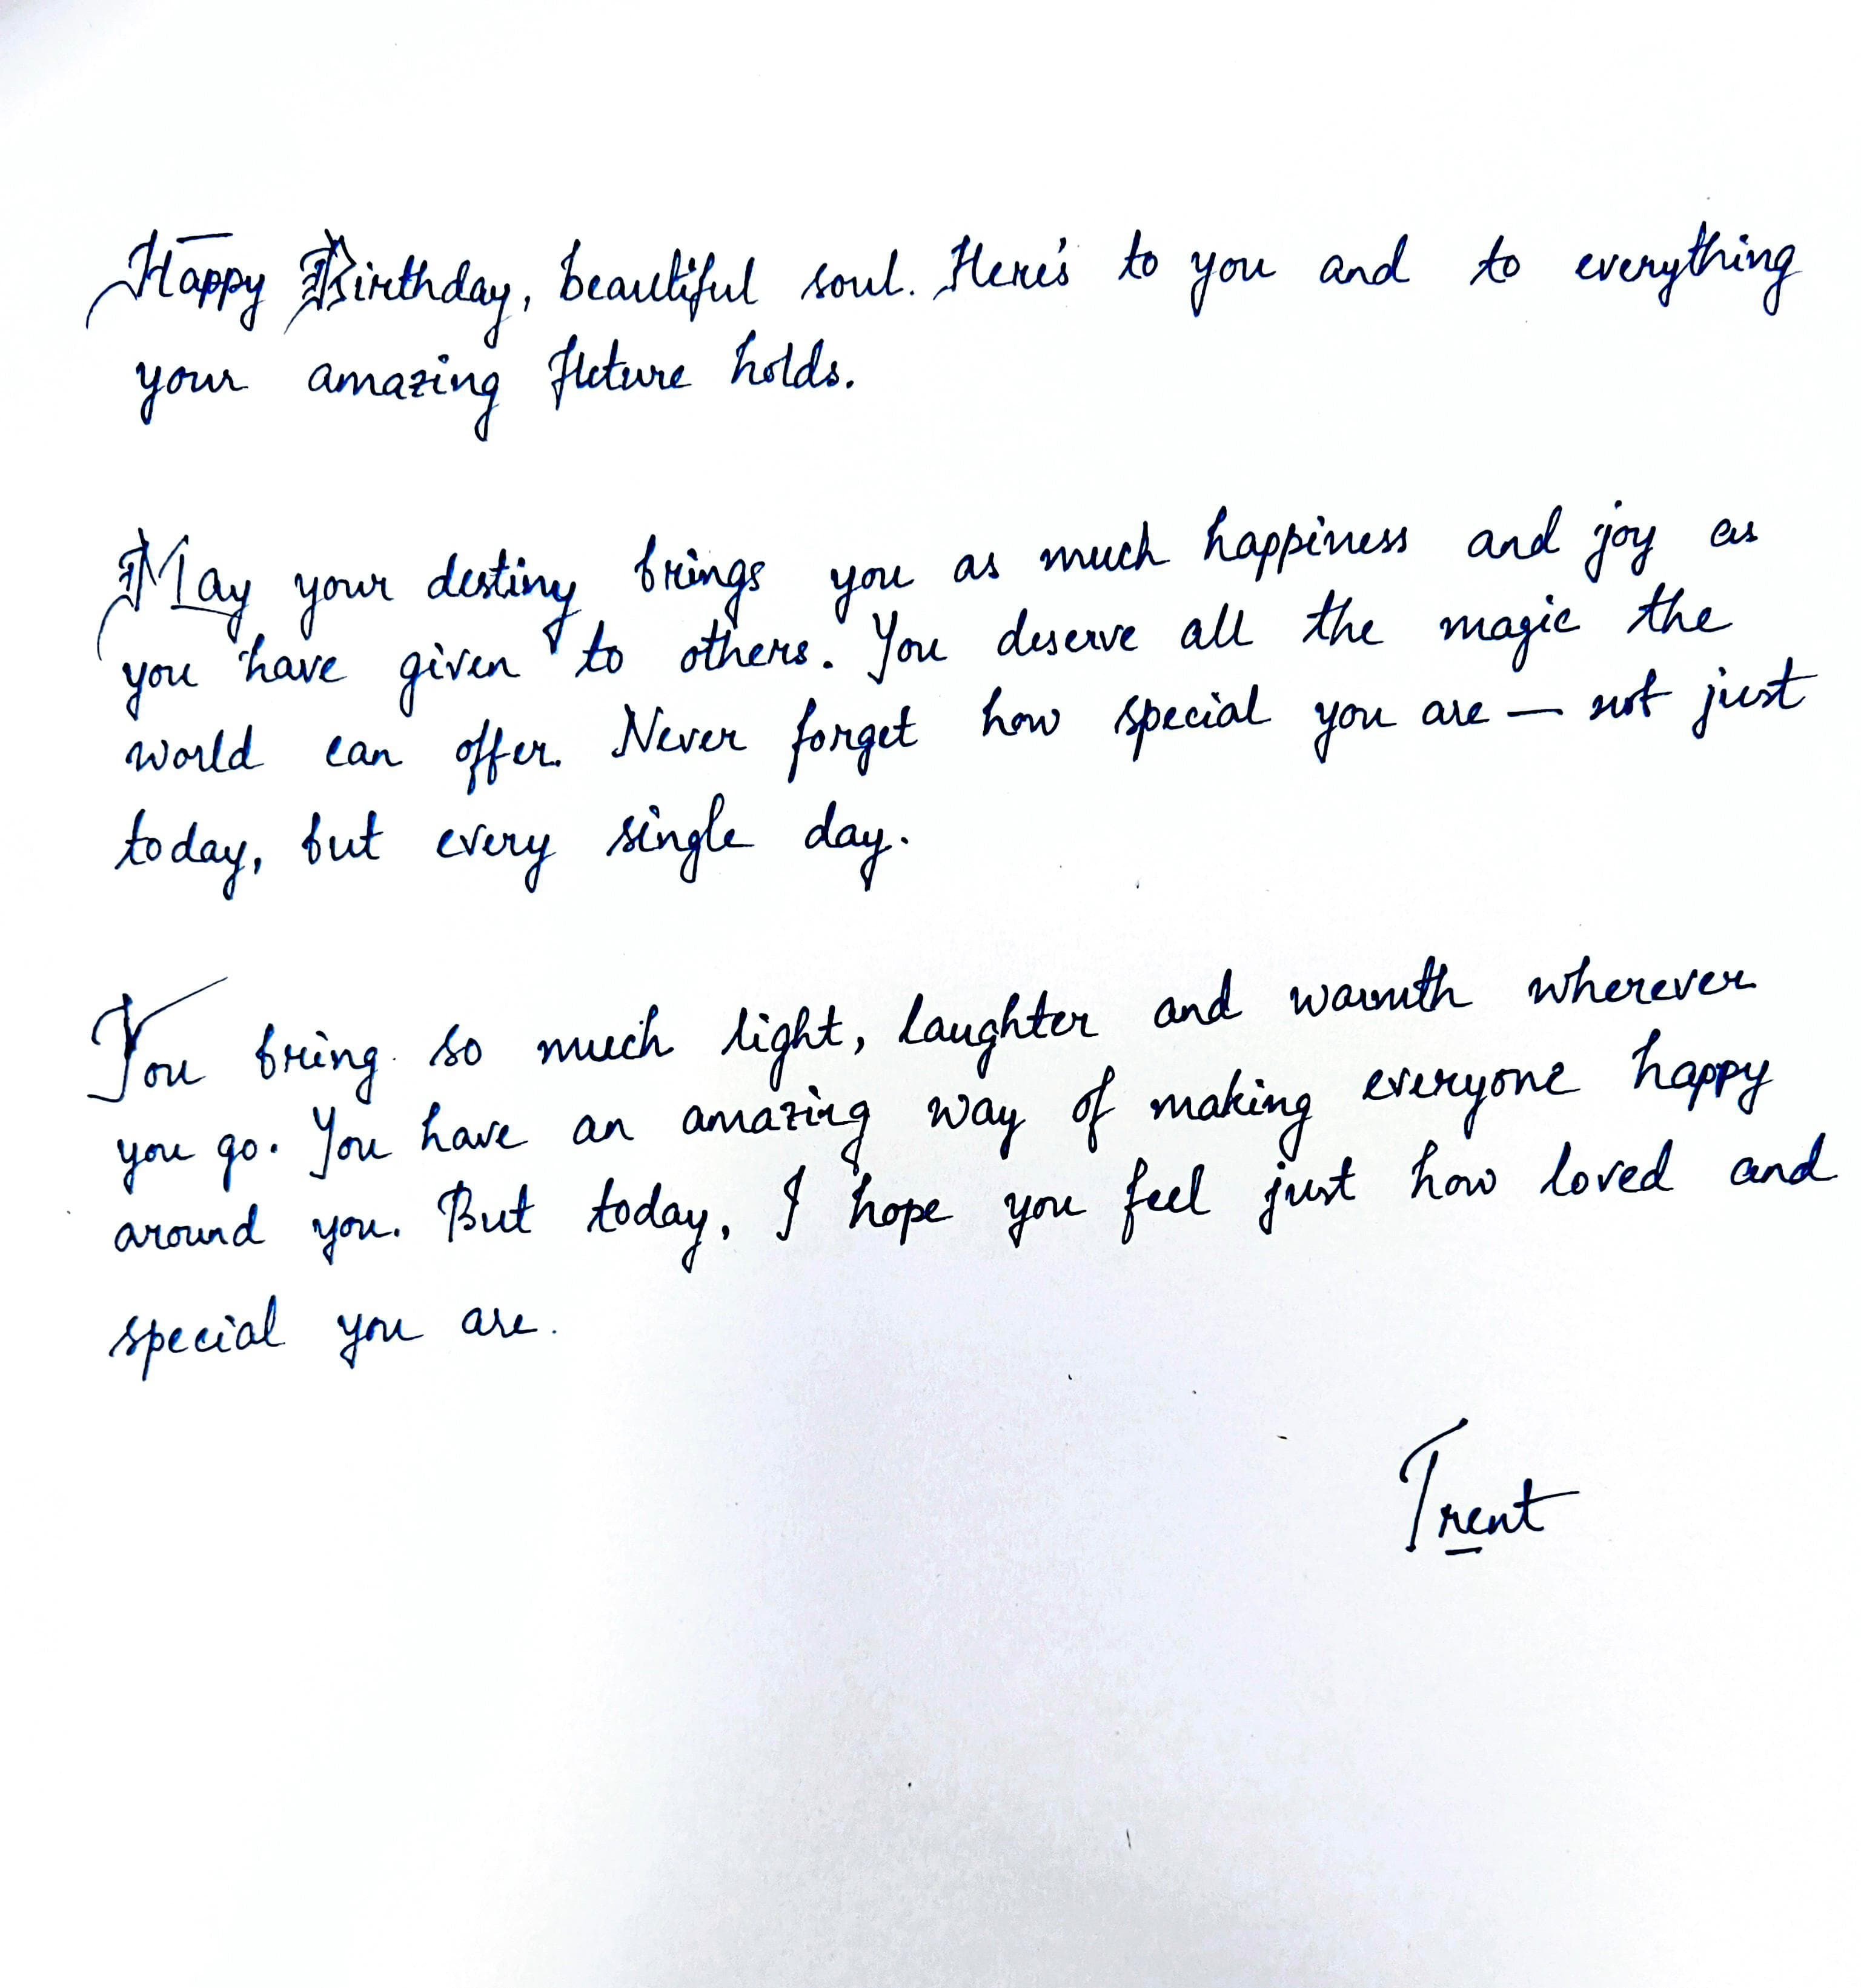 Happy Birthday, beautiful soul. Here's to you and to everything
your amazing future holds.
May your destiny brings you as much happiness and joy as
you have given to others. You deserve all the magic the
world can offer. Never forget how special you are — not just
today, but every single day.
You bring so much light, laughter and warmth wherever
you go. You have an amazing way of making everyone happy
around you. But today, I hope you feel just how loved and
special you are.
Trent